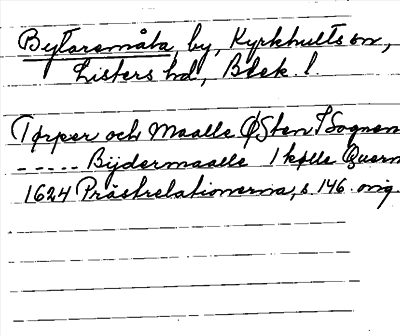 Bytaremåla, by, Kyrkhults sn,
Listers hd, Blek. l.
Torper och Maalle Østen i Sognen
----- Bijdermaalle 1 kølle Quern
1624 Prästrelationerna, s. 146. orig.